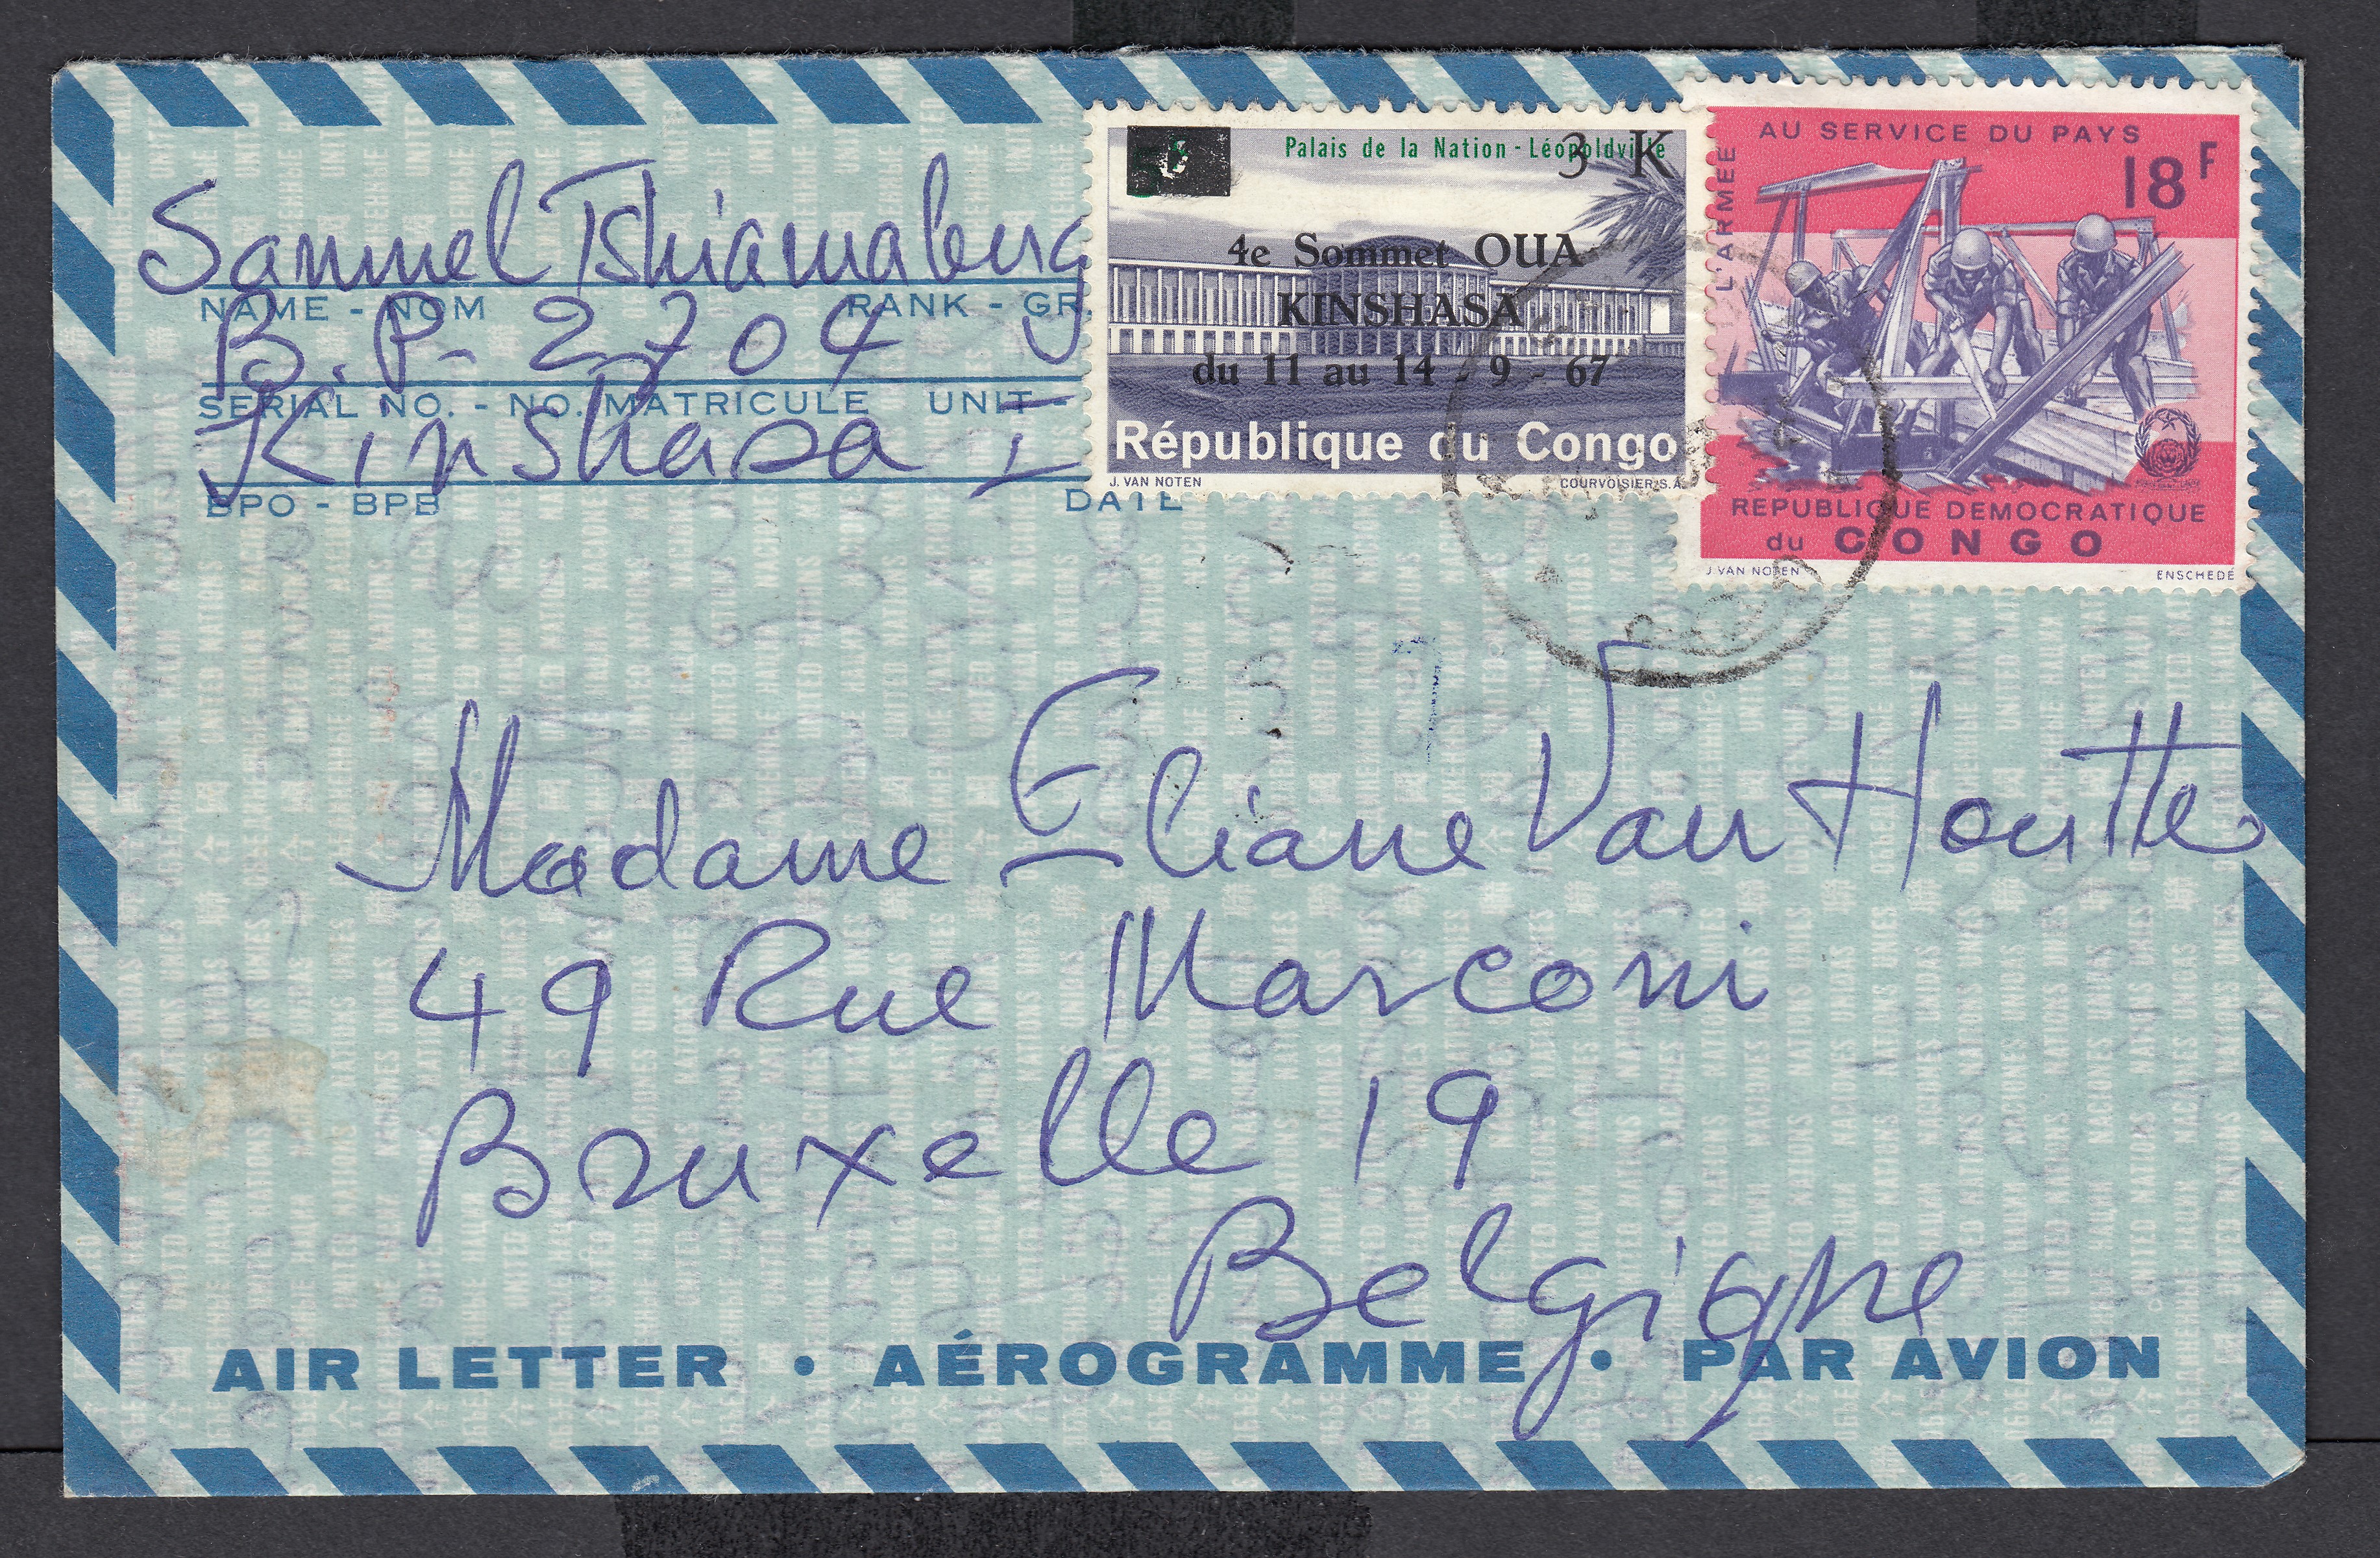 Samuel Tshiamalenga
NAME - NOM RANK - GR.
B.P. 2704
SERIAL NO. - NO. MATRICULE UNIT -
Kinshasa I
BPO - BPB DATE
Palais de la Nation - Léopoldville
3 K
4e Sommet OUA
KINSHASA
du 11 au 14 - 9 - 67
République du Congo
J. VAN NOTEN COURVOISIER S.A.
L'ARMEE AU SERVICE DU PAYS
18F
REPUBLIQUE DEMOCRATIQUE
du CONGO
J. VAN NOTEN ENSCHEDÉ
Madame Eliane Van Houtte
49 Rue Marconi
Bruxelle 19
Belgique
AIR LETTER • AÉROGRAMME • PAR AVION